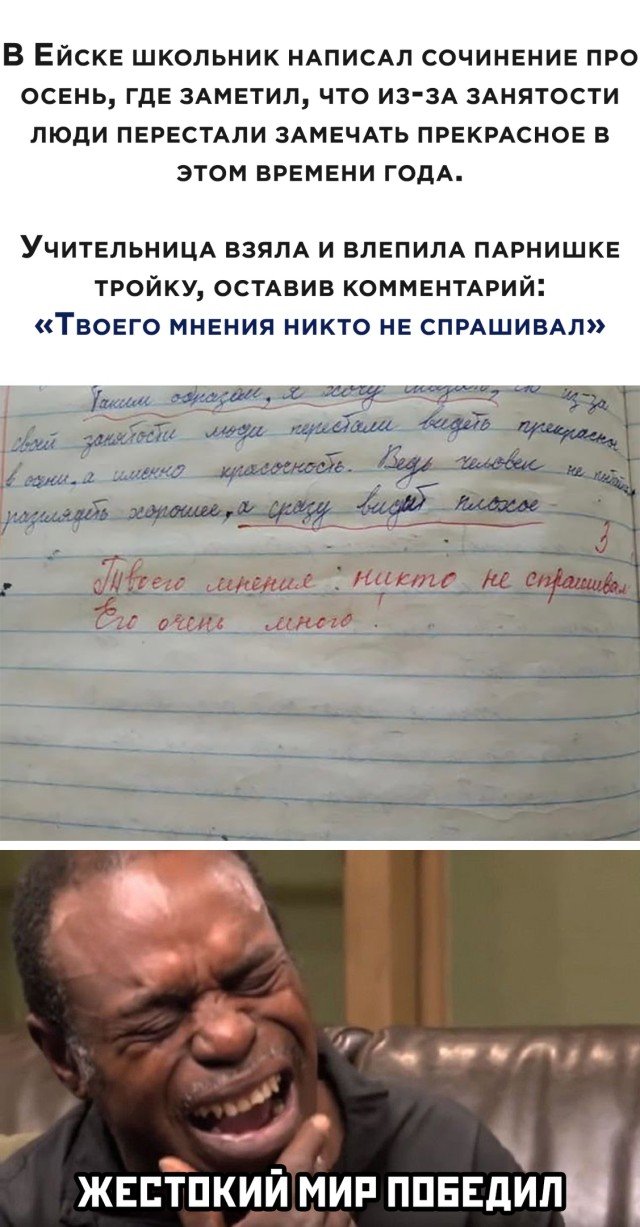 В Ейске школьник написал сочинение про
осень, где заметил, что из-за занятости
люди перестали замечать прекрасное в
этом времени года.
Учительница взяла и влепила парнишке
тройку, оставив комментарий:
«Твоего мнения никто не спрашивал»
Таким образом, я хочу сказать, из-за
своей занятости люди перестали видеть прекрасн
в осени, а именно красочность. Ведь человек не
разглядеть хорошее, а сразу видит плохое
3
Твоего мнения никто не спрашивал
Его очень много!
ЖЕСТОКИЙ МИР ПОБЕДИЛ